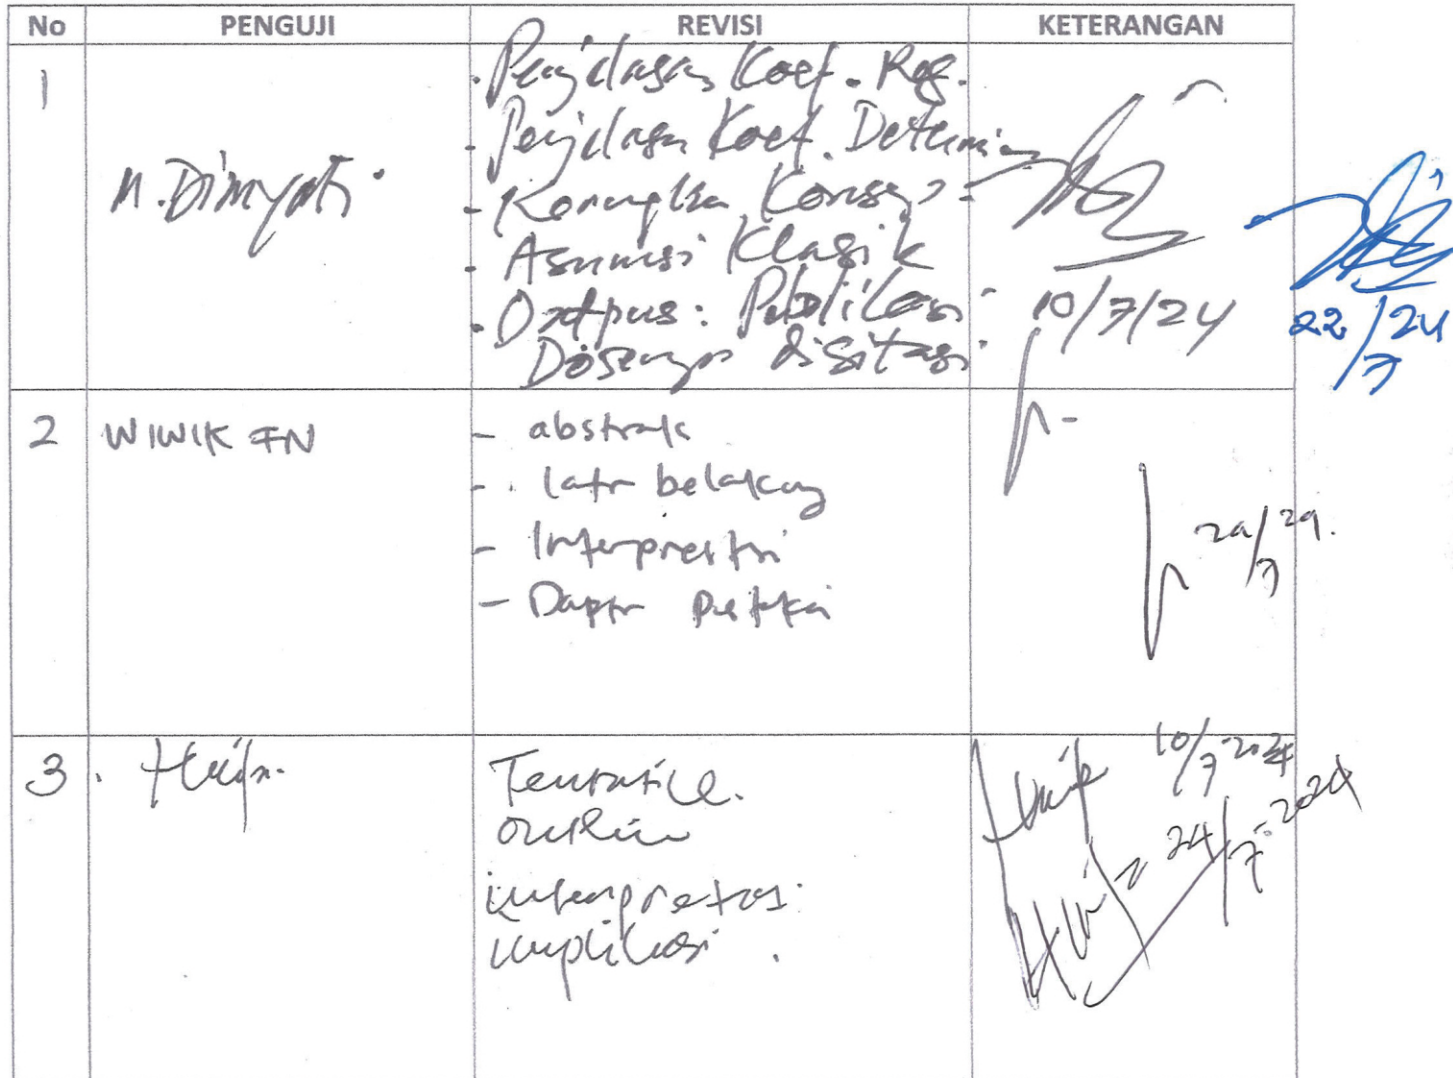 No PENGUJI REVISI KETERANGAN
1 M. Dimyati
- Penjelasan Koef. Reg.
- Penjelasan Koef. Determin
- Kerangka Konsep
- Asumsi Klasik
- Output: Publikasi
Disitasi
10/7/24
22/7/24
2 WIWIK FN
- abstrak
- latr belakang
- Interprestasi
- Daftr Pustaka
3.
Tentative
outline
interpretasi
implikasi.
10/7-2024
24/7-2024